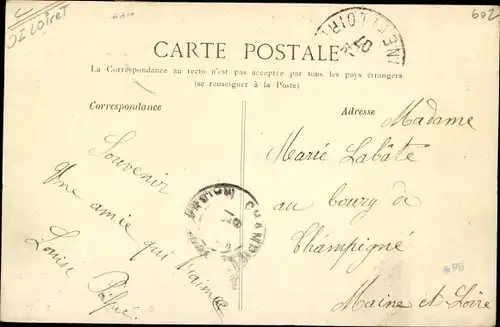 602
DI Loiret
NE ET LOIRE
07
CARTE POSTALE
La Correspondance au recto n'est pas acceptée par tous les pays étrangers
(se renseigner à la Poste)
Correspondance
Adresse
Souvenir
Une amie qui t'aime
Louise
Madame
Marie Labâte
au bourg de
Champigné
Maine et Loire